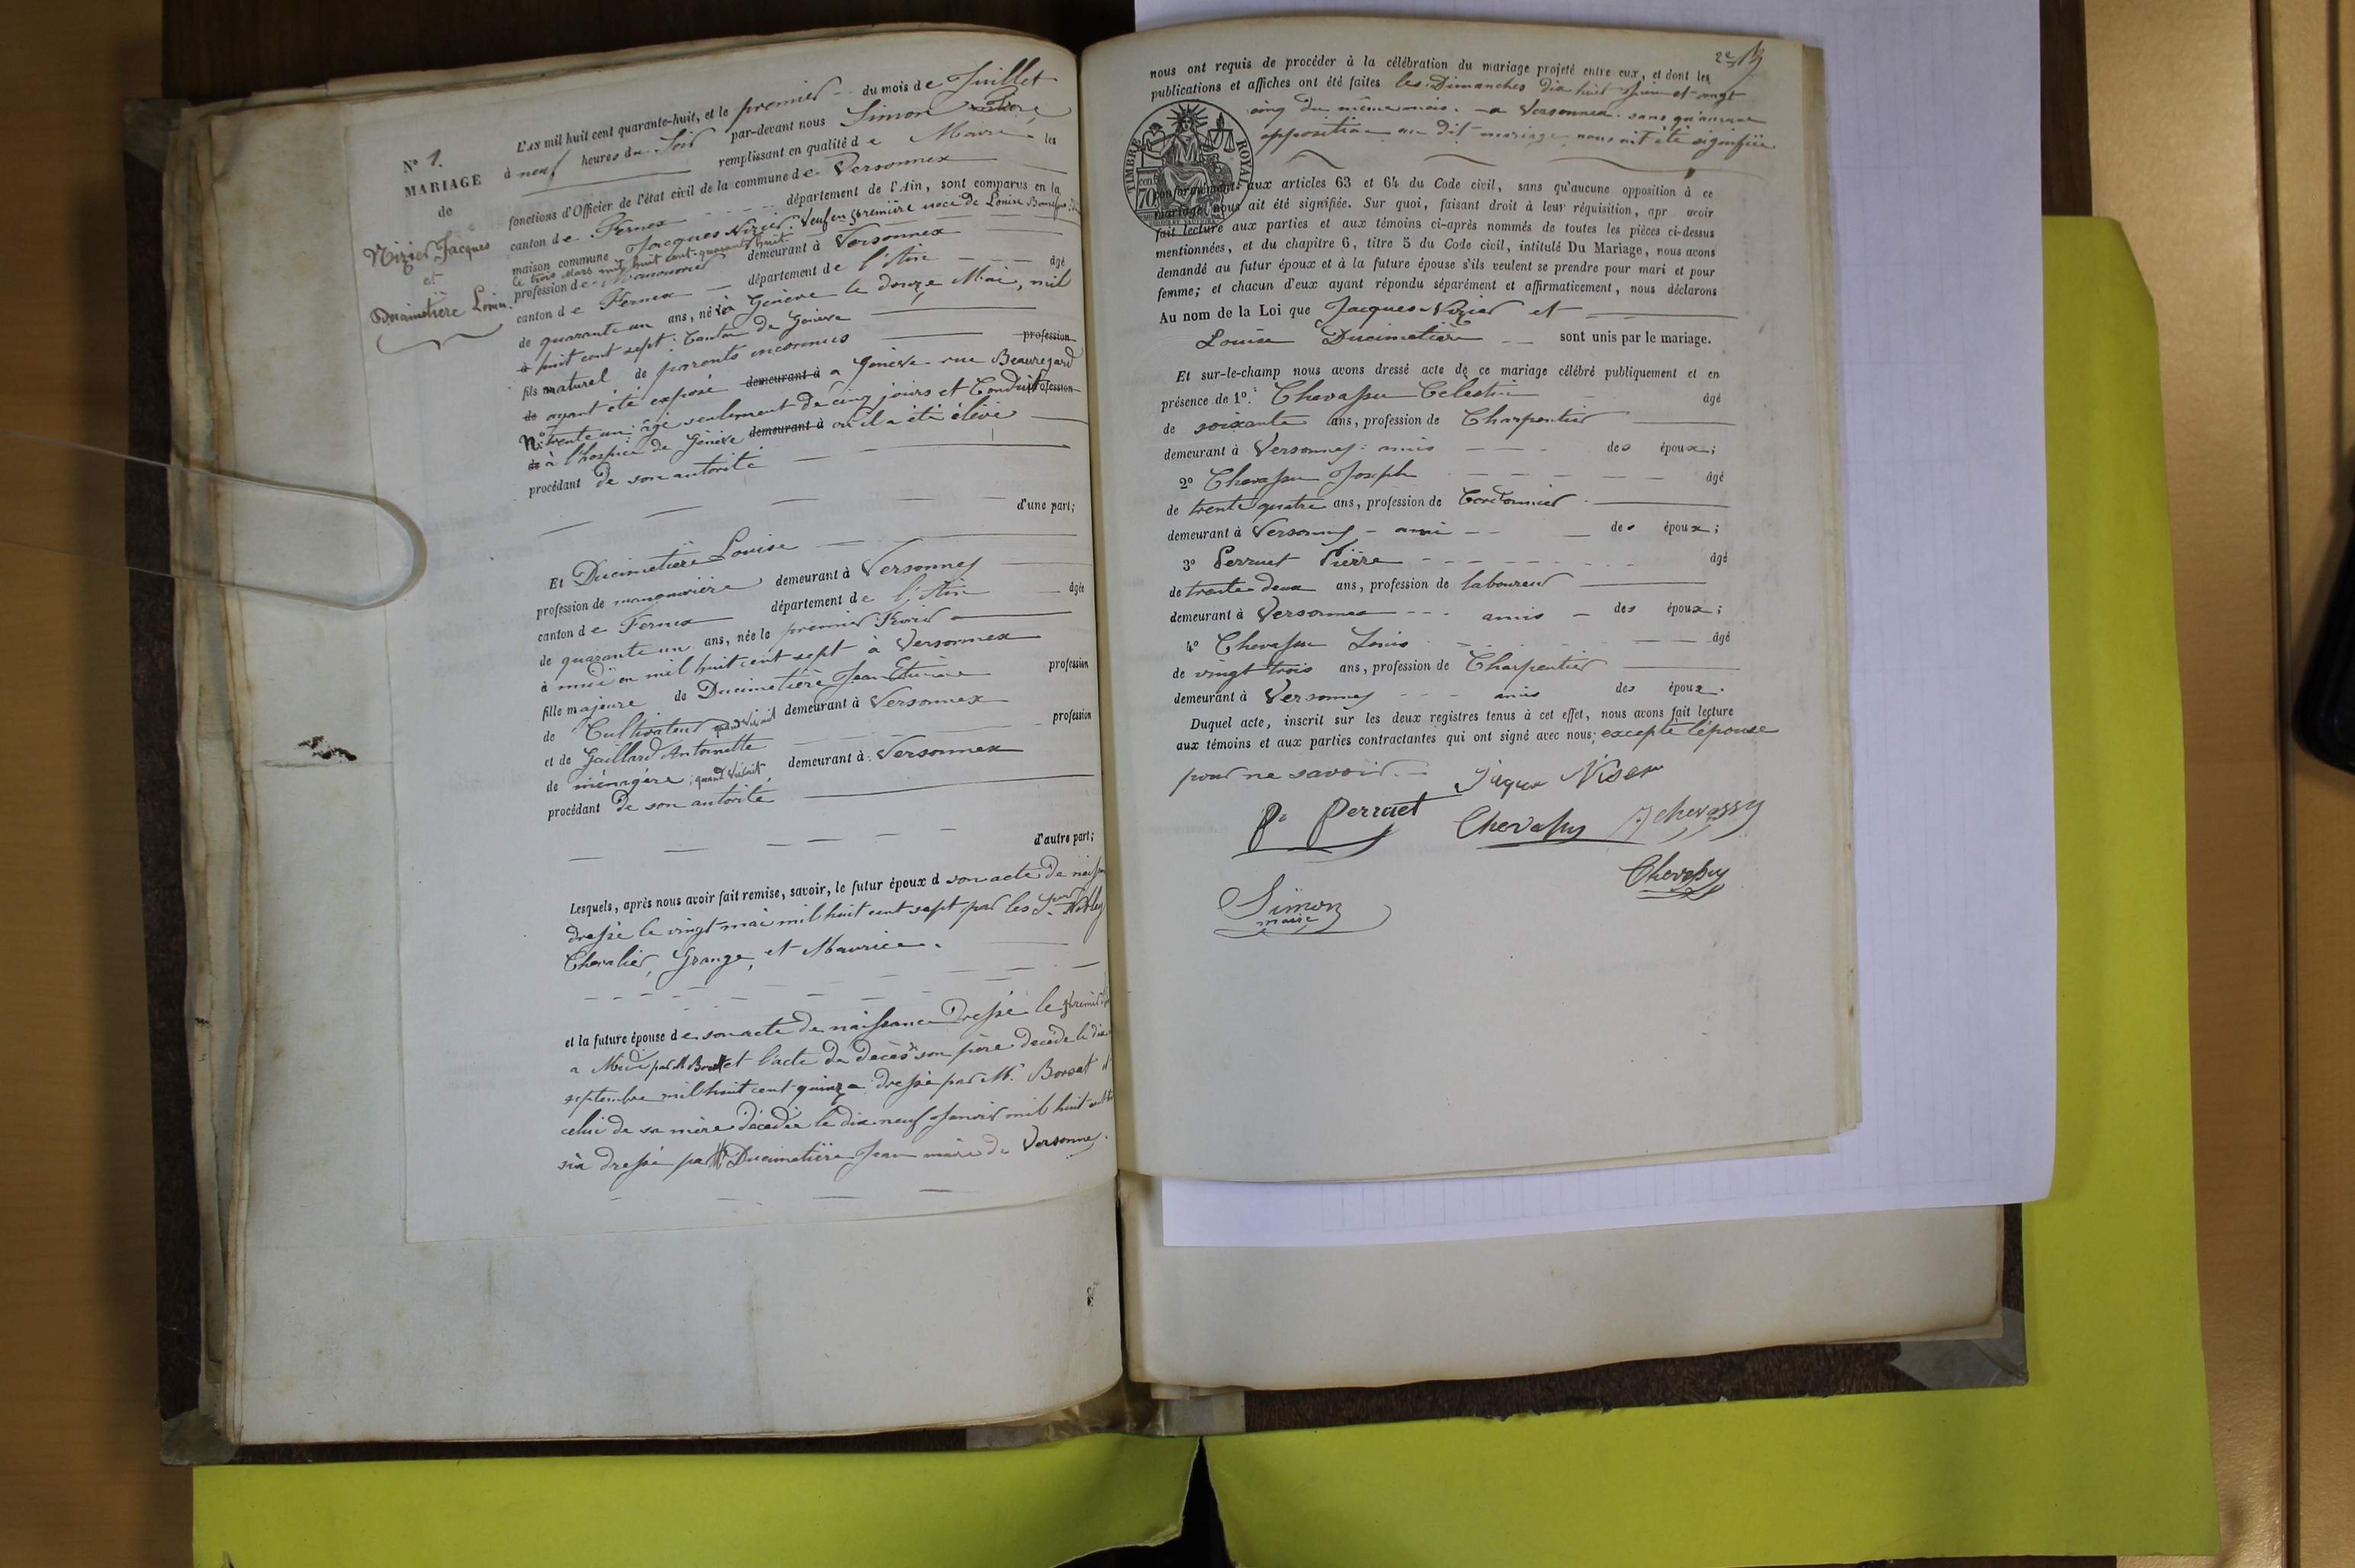 N° 1.
MARIAGE
de
Nizier Jacques
et
Ducimetière Louise
L'AN mil huit cent quarante-huit, et le premier du mois de Juillet
à neuf heures du Soir par-devant nous Simon
remplissant en qualité de Maire les
fonctions d'Officier de l'état civil de la commune de Versonnex
canton de Fernex département de l'Ain, sont comparus en la
maison commune Jacques Nizier. Veuf en première noce de Louise
le trois mars mil huit cent quarante huit
profession de Manouvrier demeurant à Versonnex
canton de Fernex département de l'Ain âgé
de quarante un ans, né à Genève le douze Mai, mil
à huit cent sept. Canton de Genève
fils naturel de parents inconnus profession
de ayant été exposé demeurant à a Genève rue Beauregard
N° trente un: âgé seulement de cinq jours et Conduit profession
de à l'hospice de Genève demeurant à où il a été élevé
procédant de son autorité
d'une part;
Et Ducimetière Louise
profession de manouvrière demeurant à Versonnex
canton de Fernex département de l'Ain âgée
de quarante un ans, née le premier Février
à midi en mil huit cent sept à Versonnex
fille majeure de Ducimetière Jean Etienne profession
de Cultivateur quand vivait demeurant à Versonnex
et de Gaillard Antoinette profession
de ménagère quand vivait, demeurant à Versonnex
procédant de son autorité
d'autre part;
Lesquels, après nous avoir fait remise, savoir, le futur époux d son acte de
dressé le vingt mai mil huit cent sept par les
Chevalier, Grange, et Maurice.
et la future épouse de son acte de naissance Dressé le premier
a Midi par M et l'acte de décès de son père décédé le
septembre mil huit cent quinze dressé par Mr. Borsat et
celui de sa mère décédée le dix neuf Janvier mil huit cent
six dressé par Mr Ducimetière Jean maire de Versonnex.
2e
nous ont requis de procéder à la célébration du mariage projeté entre eux, et dont les
publications et affiches ont été faites les Dimanches dix huit Juin et vingt
cinq du même mois. à Versonnex. sans qu'aucune
opposition au dit mariage nous ait été signifiée
TIMBRE ROYAL
70
conformément aux articles 63 et 64 du Code civil, sans qu'aucune opposition à ce
mariage nous ait été signifiée. Sur quoi, faisant droit à leur réquisition, apr avoir
fait lecture aux parties et aux témoins ci-après nommés de toutes les pièces ci-dessus
mentionnées, et du chapitre 6, titre 5 du Code civil, intitulé Du Mariage, nous avons
demandé au futur époux et à la future épouse s'ils veulent se prendre pour mari et pour
femme; et chacun d'eux ayant répondu séparément et affirmativement, nous déclarons
Au nom de la Loi que Jacques Nizier et
Louise Ducimetière sont unis par le mariage.
Et sur-le-champ nous avons dressé acte de ce mariage célébré publiquement et en
présence de 1°. Chevassu Celestin âgé
de soixante ans, profession de Charpentier
demeurant à Versonnex: amis des époux;
2° Chevassu Joseph âgé
de trente quatre ans, profession de Cordonnier
demeurant à Versonnex - ami des époux;
3° Perruet Pierre âgé
de trente deux ans, profession de laboureur
demeurant à Versonnex amis des époux;
4° Chevassu Louis âgé
de vingt trois ans, profession de Charpentier
demeurant à Versonnex amis des époux.
Duquel acte, inscrit sur les deux registres tenus à cet effet, nous avons fait lecture
aux témoins et aux parties contractantes qui ont signé avec nous; excepté l'épouse
pour ne savoir.
Jaques Niser
Pe Perruet Chevassu J chevassu
Chevassu
Simon
maire